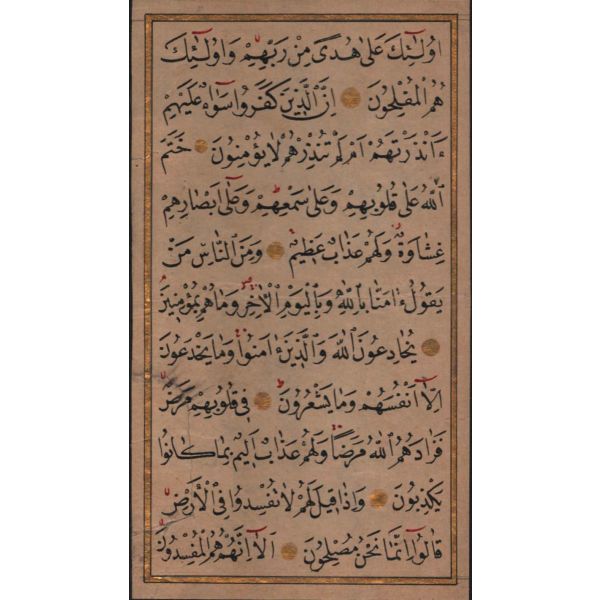 اُولٰٓئِكَ عَلٰى هُدًى مِنْ رَبِّهِمْ وَاُولٰٓئِكَ
هُمُ الْمُفْلِحُونَ ۝ اِنَّ الَّذِينَ كَفَرُوا سَوَاءٌ عَلَيْهِمْ
ءَاَنْذَرْتَهُمْ اَمْ لَمْ تُنْذِرْهُمْ لَا يُؤْمِنُونَ ۝ خَتَمَ
اللّٰهُ عَلٰى قُلُوبِهِمْ وَعَلٰى سَمْعِهِمْ وَعَلٰٓى اَبْصَارِهِمْ
غِشَاوَةٌ وَلَهُمْ عَذَابٌ عَظِيمٌ ۝ وَمِنَ النَّاسِ مَنْ
يَقُولُ ءَامَنَّا بِاللّٰهِ وَبِالْيَوْمِ الْاٰخِرِ وَمَا هُمْ بِمُؤْمِنِينَ
۝ يُخَادِعُونَ اللّٰهَ وَالَّذِينَ ءَامَنُوا وَمَا يَخْدَعُونَ
اِلَّٓا اَنْفُسَهُمْ وَمَا يَشْعُرُونَ ۝ فِى قُلُوبِهِمْ مَرَضٌ
فَزَادَهُمُ اللّٰهُ مَرَضًا وَلَهُمْ عَذَابٌ اَلِيمٌ بِمَا كَانُوا
يَكْذِبُونَ ۝ وَاِذَا قِيلَ لَهُمْ لَا تُفْسِدُوا فِى الْاَرْضِ
قَالُوٓا اِنَّمَا نَحْنُ مُصْلِحُونَ ۝ اَلَٓا اِنَّهُمْ هُمُ الْمُفْسِدُونَ